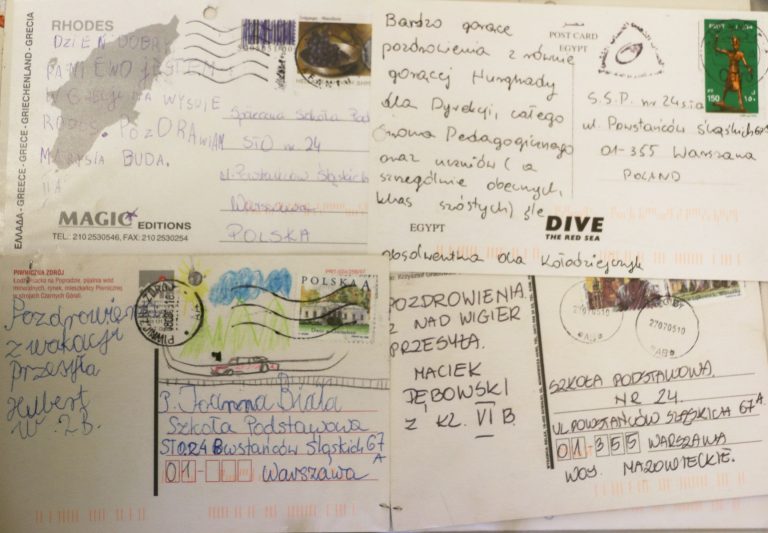 RHODES
DZIEŃ DOBRY
PANI EWO JESTEM
W GRECJI NA WYSPIE
RODOS. POZDRAWIAM
MARYSIA BUDA.
II A
ΕΛΛΑΔΑ - GREECE - GRECE - GRIECHENLAND - GRECIA
MAGIC EDITIONS
TEL.: 210 2530546, FAX. 210 2530254
Społeczna Szkoła Pod
STO nr. 24
ul. Powstańców Śląskich
Warszawa
POLSKA
Bardzo gorące
pozdrowienia z równie
gorącej Hurghady
dla Dyrekcji, całego
Grona Pedagogicznego
oraz uczniów (a
szczególnie obecnych
klas szóstych) śle
EGYPT
absolwentka Ola Kołodziejczyk
POST CARD
EGYPT
150
S.S.P. nr 24
ul. Powstańców Śląskich 67
01-355 Warszawa
POLAND
DIVE
THE RED SEA
PIWNICZNA ZDRÓJ
Pozdrowienia
z wakacji
przesyła
Hubert
W. 2B.
POLSKA A
P. Joanna Biała
Szkoła Podstawowa
STO 24 Powstańców Śląskich 67
A
01- Warszawa
POZDROWIENIA
Z NAD WIGIER
PRZESYŁA
MACIEK
DĘBOWSKI
Z KL. VI B.
27070510
27070510
SZKOŁA PODSTAWOWA
NR 24.
UL POWSTAŃCÓW ŚLĄSKICH 67A
01 355 WARSZAWA
WOJ. MAZOWIECKIE.